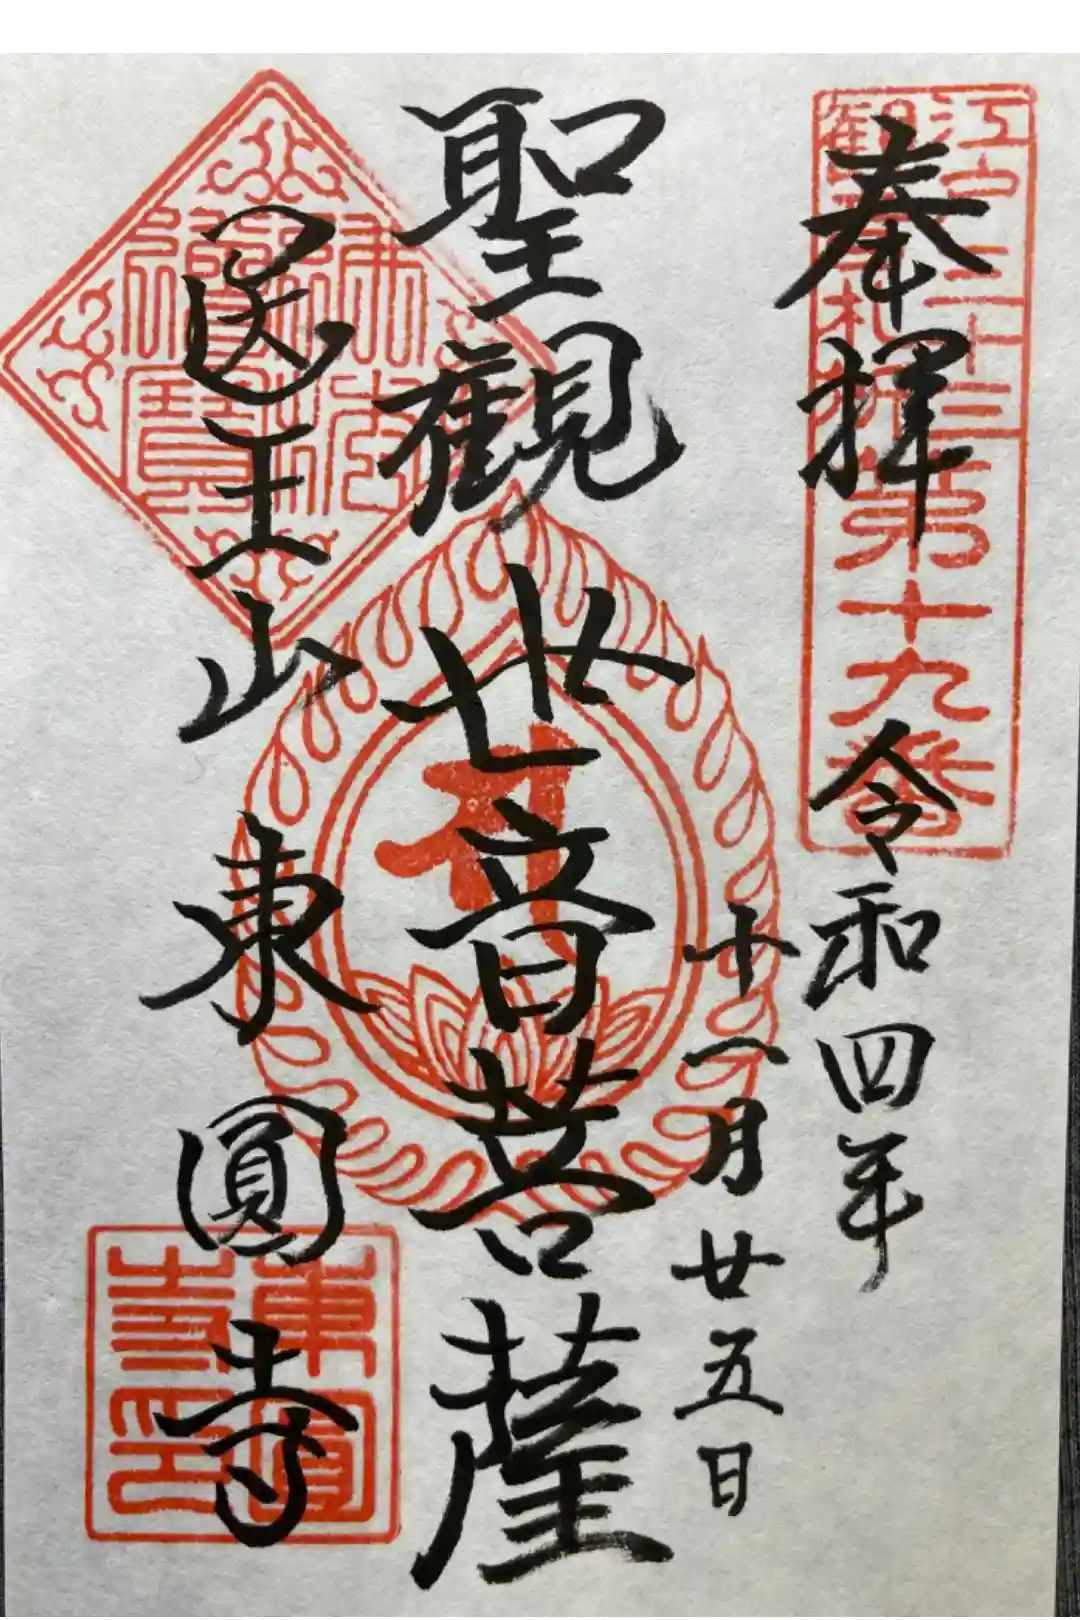 江戸三十三
観音札所
第十九番
奉拝
令和四年
十一月廿五日
聖観世音菩薩
佛法僧寶
医王山
東圓寺
東圓寺印